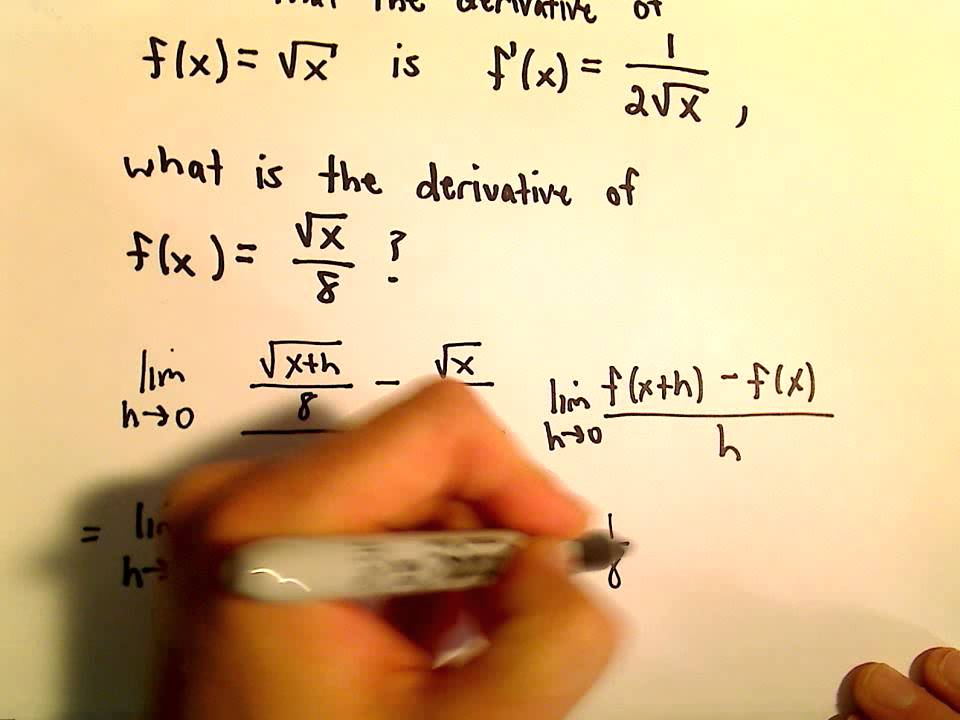 the derivative of
f(x) = √x is f'(x) = 1/(2√x) ,
what is the derivative of
f(x) = √x/8 ?
lim h→0 √(x+h)/8 - √x
lim h→0 (f(x+h) - f(x))/h
= h→ 1/8